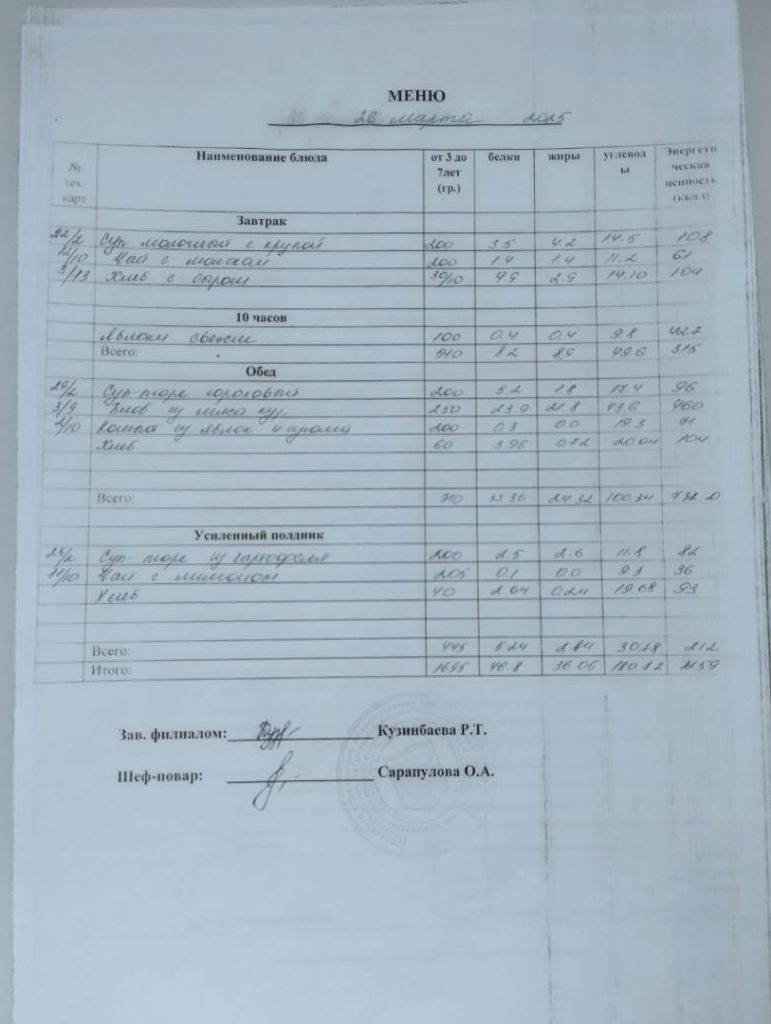 МЕНЮ
26 марта 2025
№ тех. карт Наименование блюда от 3 до 7лет (гр.) белки жиры углеводы Энергетическая ценность (ккал)
Завтрак
22/2 Суп молочный с крупой 200 3.5 4.2 14.5 108
12/10 Чай с молоком 200 1.4 1.4 11.2 61
3/13 Хлеб с сыром 30/10 4.9 2.9 14.10 104
10 часов
Яблоки свежие 100 0.4 0.4 9.8 42.7
Всего: 540 8.2 8,9 49.6 315
Обед
20/2 Суп-пюре гороховый 200 5.2 1.8 17.4 96
3/9 Плов из мяса кур 250 23.9 21.8 43.6 460
2/10 Компот из яблок и 200 0.3 0.0 19.3 71
Хлеб 60 3.96 0.72 20.04 104
Всего: 710 33.36 24.32 100.34 732.0
Усиленный полдник
25/2 Суп-пюре из картофеля 200 2.5 2.6 11.8 82
11/10 Чай с лимоном 205 0.1 0.0 9.3 36
Хлеб 40 2.64 0.24 19.68 93
Всего: 445 5.24 2.84 30.78 212
Итого: 1695 46.8 36.06 180.82
Зав. филиалом: Кузинбаева Р.Т.
Шеф-повар: Сарапулова О.А.